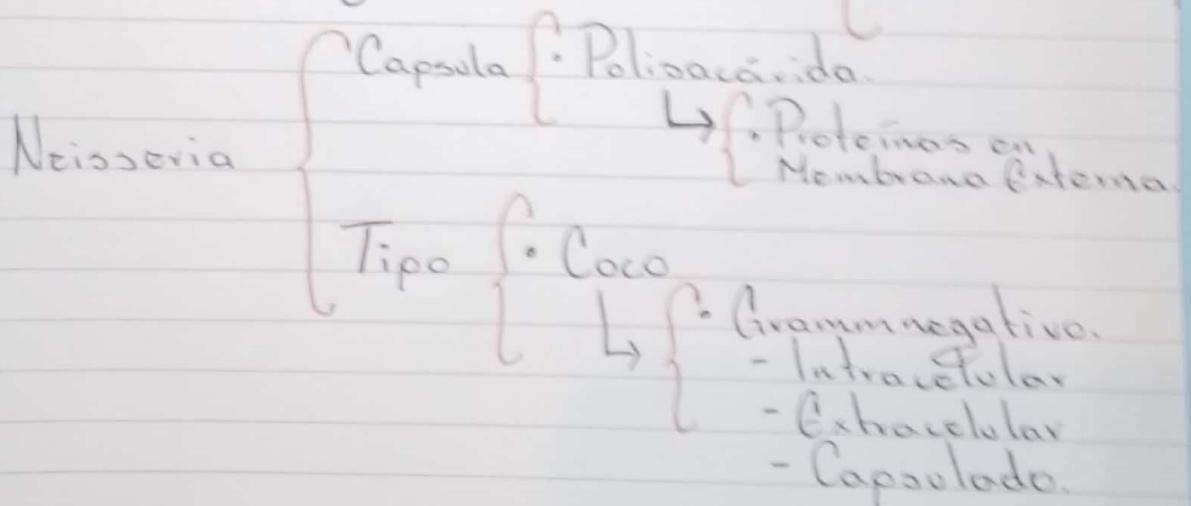 Capsula · Polisacárida.
↳ · Proteínas en
Membrana Externa.
Neisseria
Tipo · Coco
↳ · Grammnegativo.
- Intracelular
- Extracelular
- Capsulado.